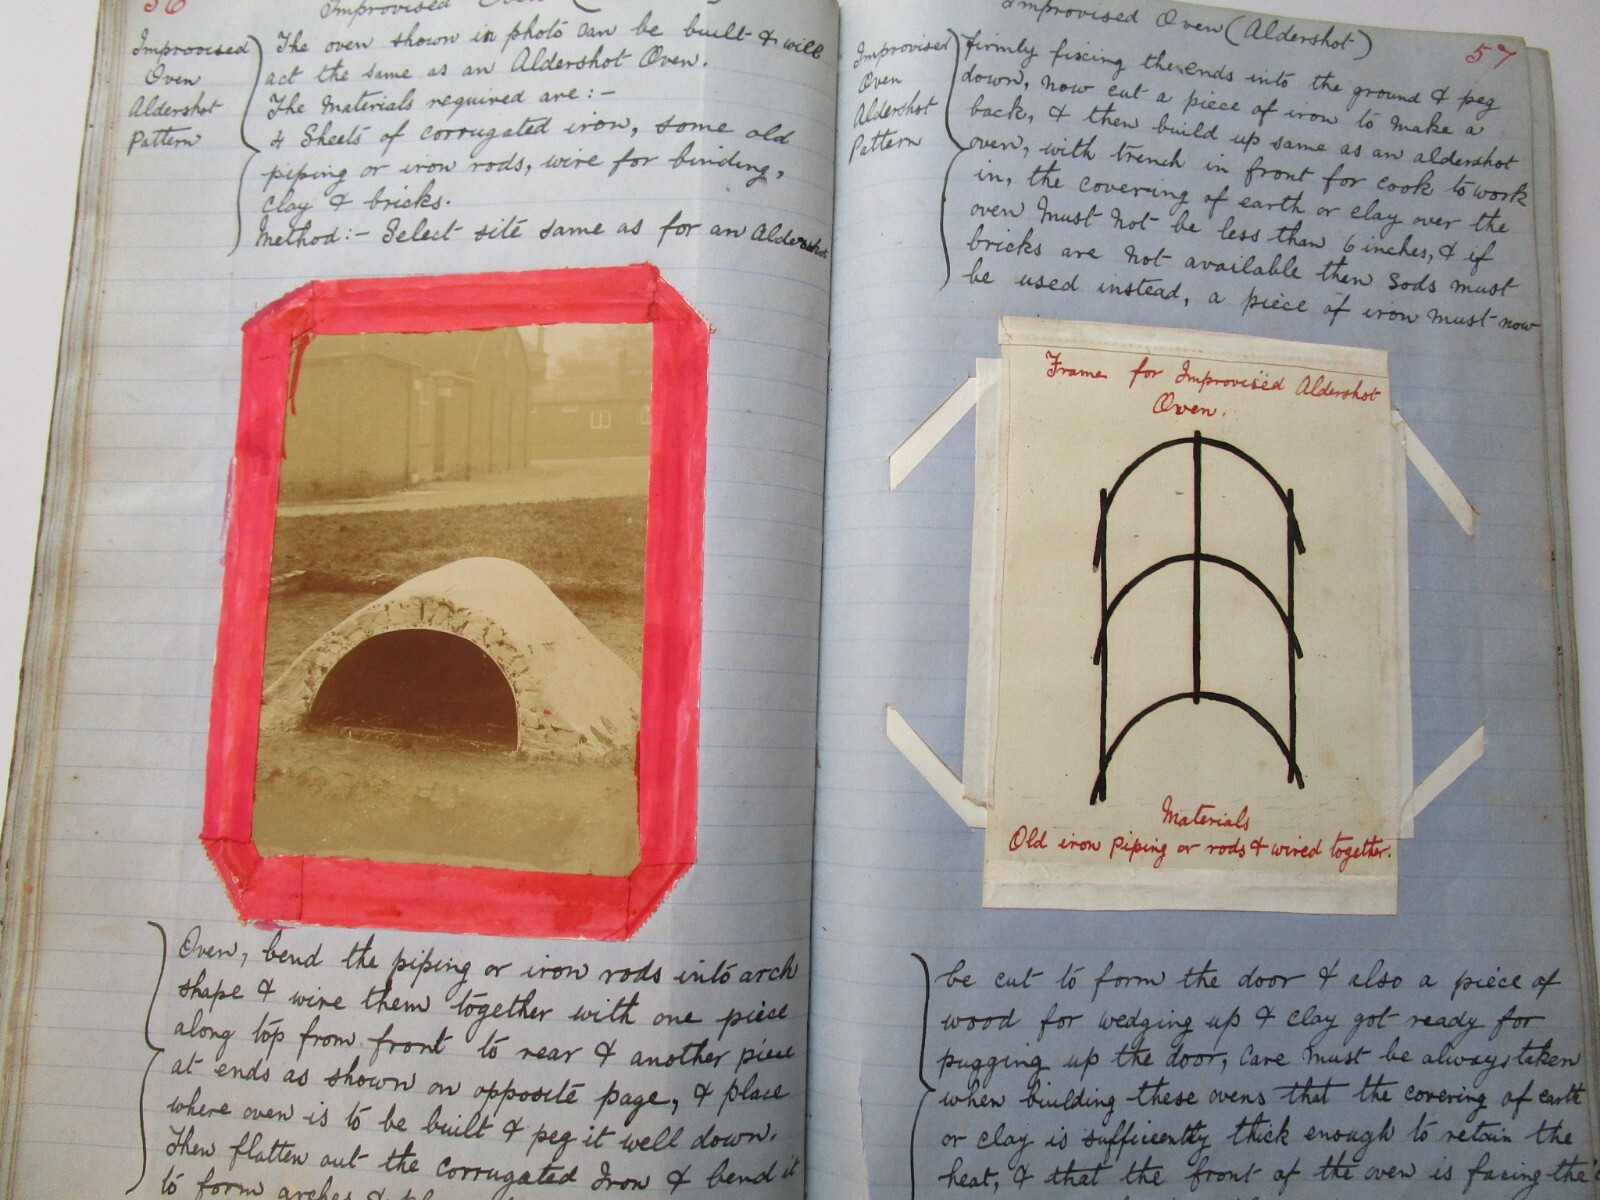 56
Improvised Oven
Improvised
Oven
Aldershot
Pattern
The oven shown in photo can be built & will
act the same as an Aldershot Oven.
The Materials required are:-
4 Sheets of corrugated iron, some old
piping or iron rods, wire for binding,
clay & bricks.
Method:- Select site same as for an Aldershot
Oven, bend the piping or iron rods into arch
shape & wire them together with one piece
along top from front to rear & another piece
at ends as shown on opposite page, & place
where oven is to be built & peg it well down.
Then flatten out the corrugated Iron & bend it
to form arches &
Improvised Oven (Aldershot)
57
Improvised
Oven
Aldershot
Pattern
firmly fixing the ends into the ground & peg
down, now cut a piece of iron to make a
back, & then build up same as an aldershot
oven, with trench in front for cook to work
in, the covering of earth or clay over the
oven must not be less than 6 inches, & if
bricks are not available then sods must
be used instead, a piece of iron must now
Frame for Improvised Aldershot
Oven.
Materials
Old iron piping or rods & wired together.
be cut to form the door & also a piece of
wood for wedging up & clay got ready for
pugging up the door, Care must be always taken
when building these ovens that the covering of earth
or clay is sufficently thick enough to retain the
heat, & that the front of the oven is facing the